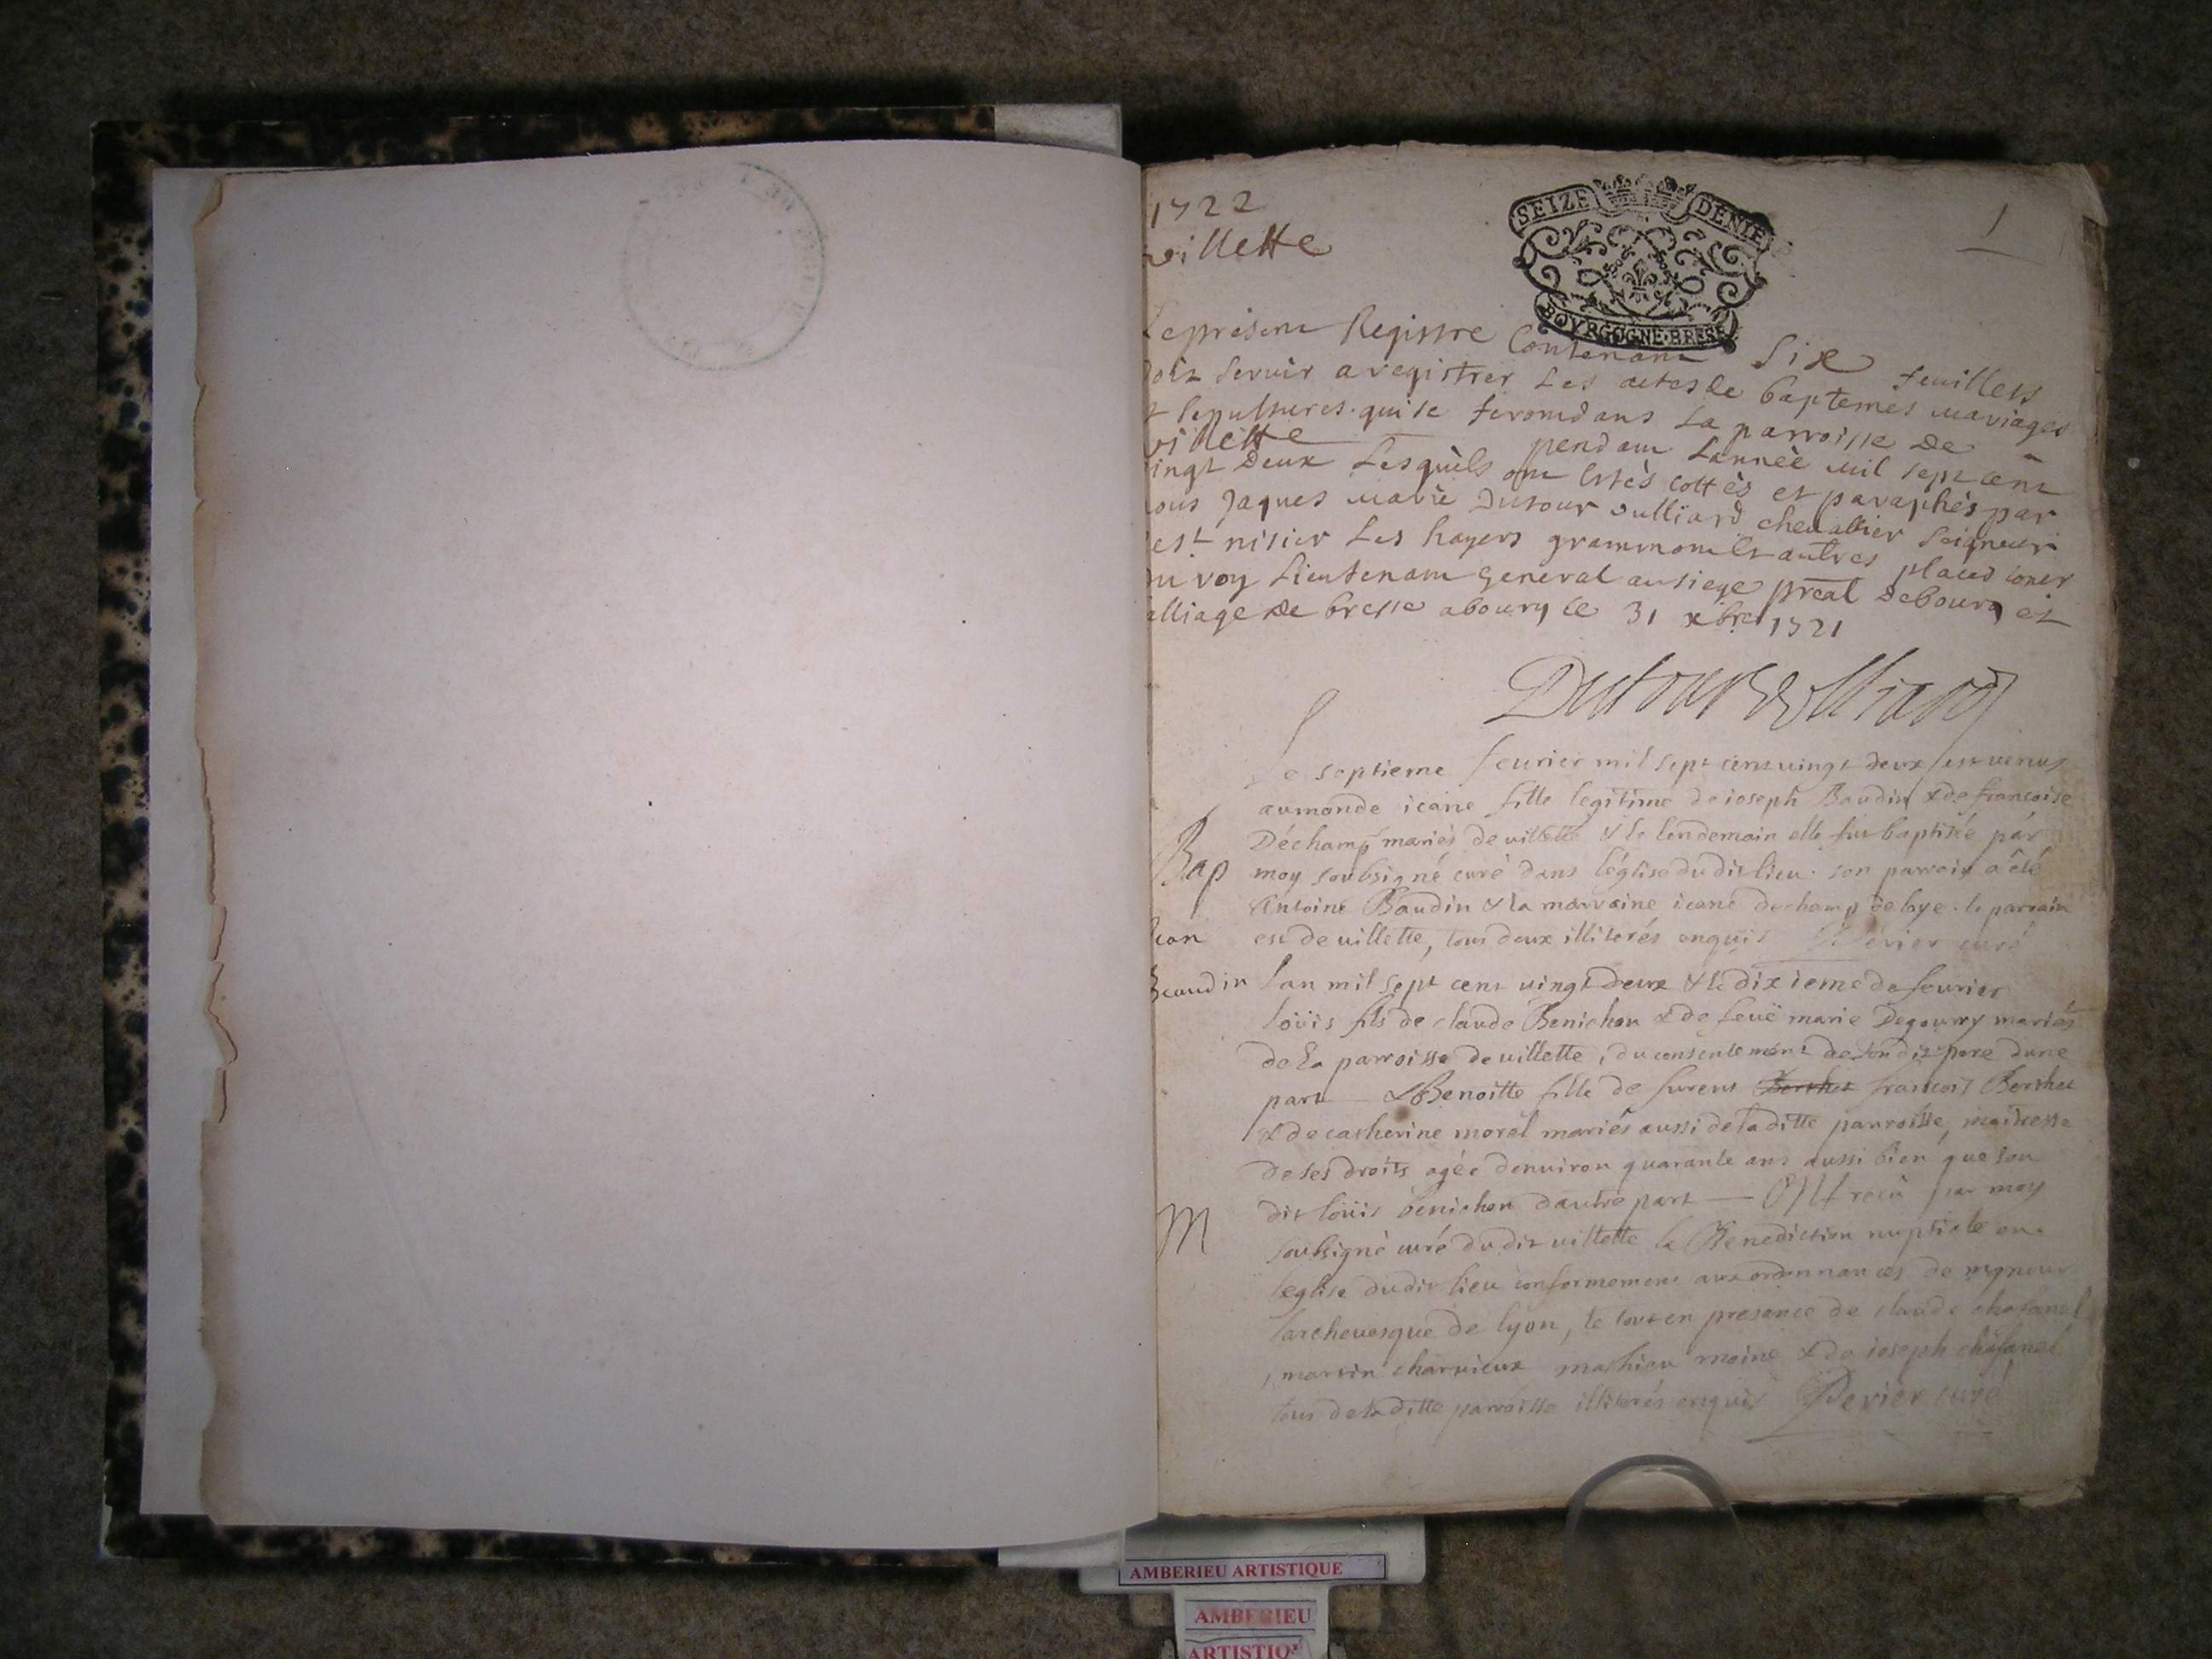 1722
villette
SEIZE DENIE
BOVRGOGNE·BRESE
1
Le present Registre Contenant Six feuillets
doit servir a registrer Les actes de baptemes mariages
et sepultures qui se feront dans La parroisse De
villette pendant Lannèè mil sept cent
vingt Deux Lesquels ont Estès cottès et paraphès par
nous Jaques marie Dutour vulliard chevallier Seigneur
de st nisier Les hayers grammont et autres places
du roy Lieutenant General au siege preal De bourg et
balliage de bresse a bourg le 31 xbre 1721
Dutour Vulliard
Le septieme feurier mil sept cent vingt deux est venus
au monde ieane fille legitime de ioseph Baudin & de francoise
Déchamp mariés de villette & le lendemain elle fut baptisée par
Bap
moy soubsigné curé dans l'église du dit lieu. son parrain a été
Antoine Baudin & la marraine ieane dechamp de loye. le parrain
est de villette, tous deux illiterés enquis Pévier curé
Baudin
Lan mil sept cent vingt deux & le dixieme de feurier
loüis fils de claude Benichon & de feuë marie Degourry mariés
de la parroisse de villette, du consentement de son dit pere dune
part & Benoitte fille de furent Berthet francois Berthet
& de catherine morel mariés aussi de la ditte parroisse, maitresse
de ses droits agée denuiron quarante ans aussi bien que son
dit loüis benichon dautre part — Ont reçû par moy
M
soubsigné curé du dit villette la Benediction nuptiale en
leglise du dit lieu conformement aux ordonnances de mgneur
larcheuesque de lyon, le tout en presence de claude chafanel
, martin charuieux mathieu moine & de ioseph chafanel
tous de la ditte parroisse illiterés enquis Pevier curé
AMBERIEU ARTISTIQUE
AMBERIEU
ARTISTIQ